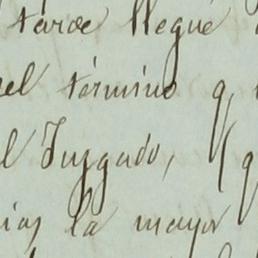 tarde llegué
el término q
l Juzgado, (q
ias la mayor